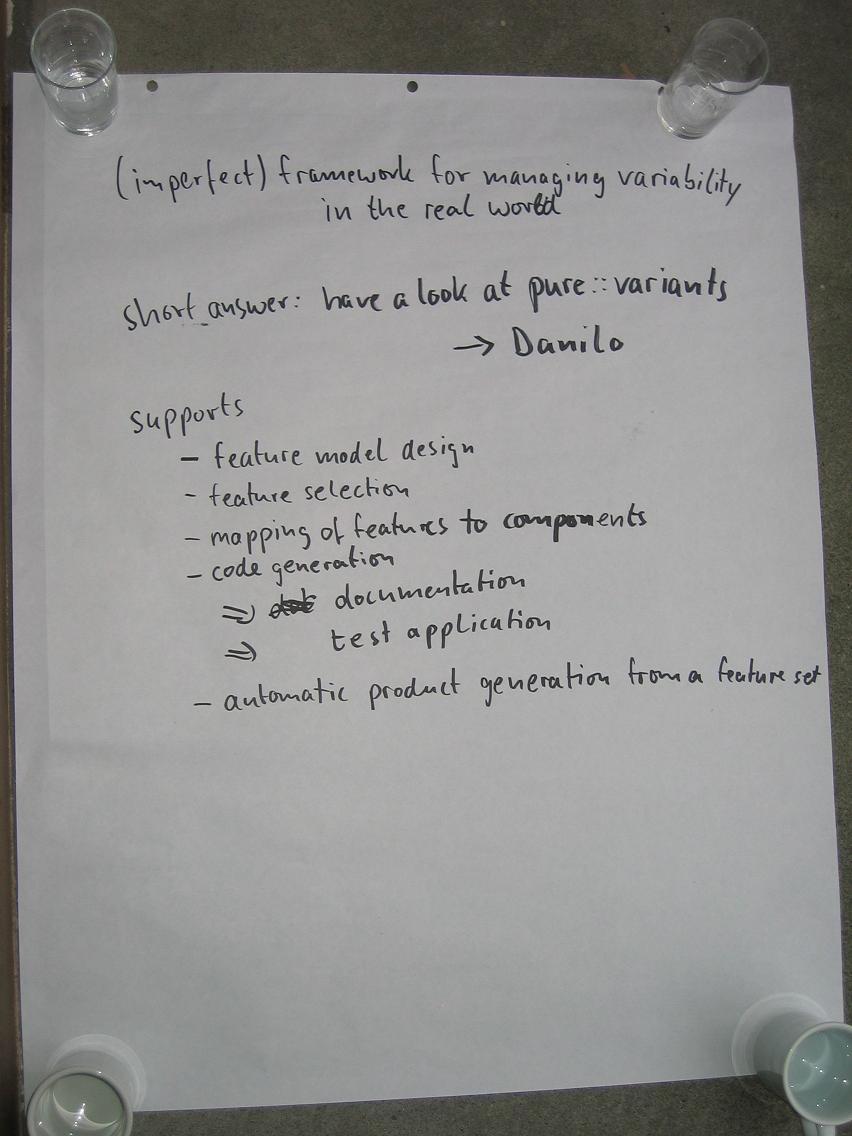 (imperfect) framework for managing variability
in the real world
short answer: have a look at pure::variants
→ Danilo
supports
- feature model design
- feature selection
- mapping of features to components
- code generation
⇒ documentation
⇒ test application
- automatic product generation from a feature set